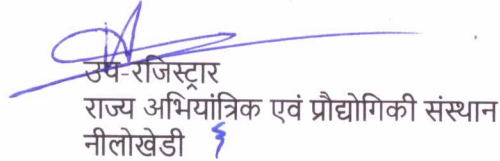 उप-रजिस्ट्रार
राज्य अभियांत्रिक एवं प्रौद्योगिकी संस्थान
नीलोखेडी